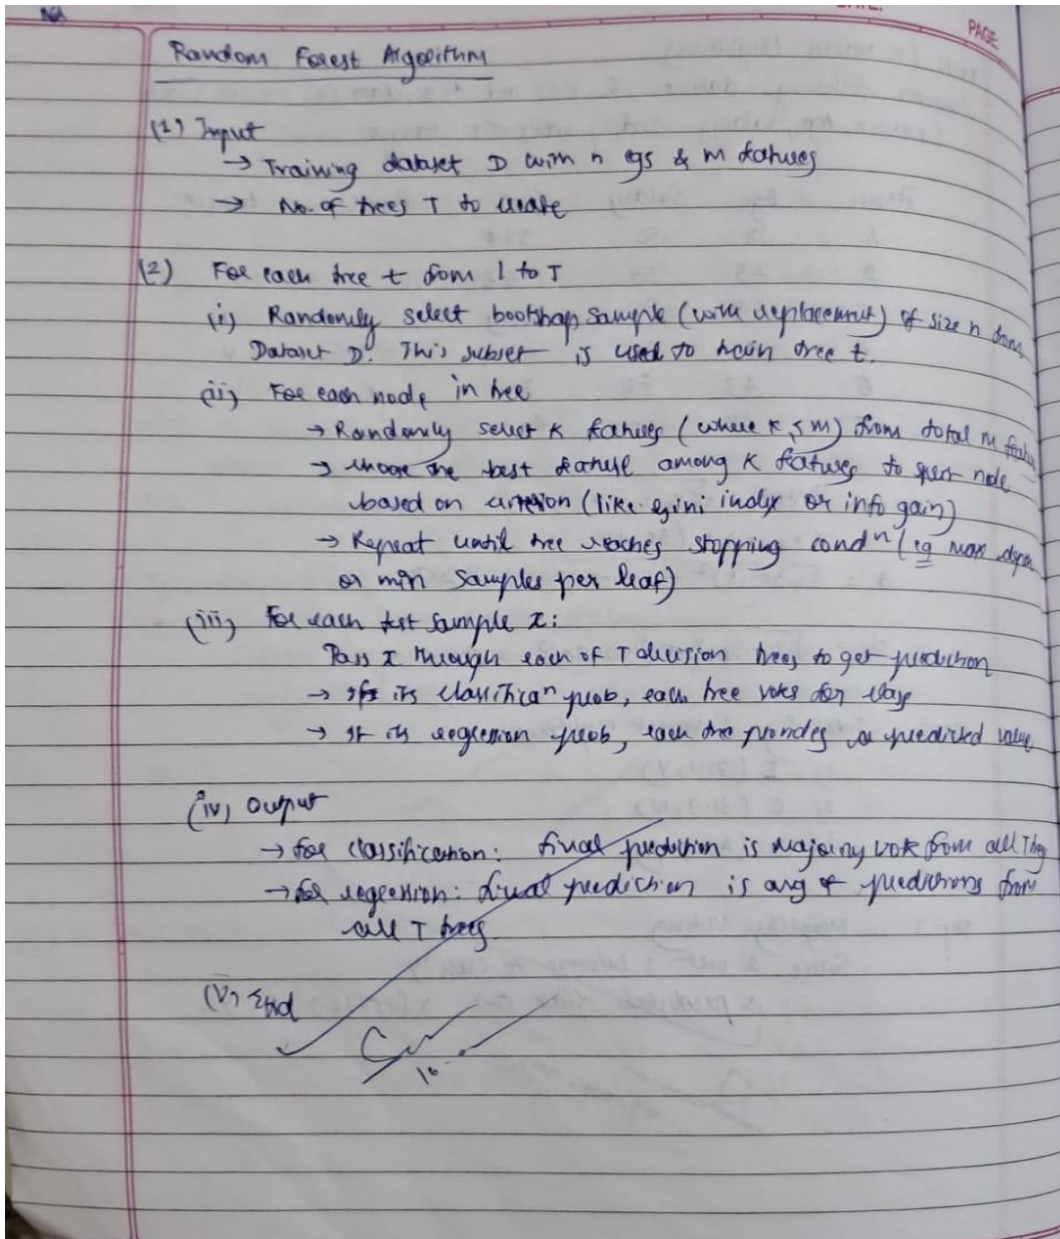 PAGE
Random Forest Algorithm
(1) Input
→ Training dataset D with n egs & m features
→ No. of trees T to create
(2) For each tree t from 1 to T
(i) Randomly select bootstrap sample (with replacement) of size n from
Dataset D. This subset is used to train tree t.
(ii) For each node in tree
→ Randomly select K features (where K ≤ m) from total m
→ choose the best feature among K features to split node
based on criterion (like gini index or info gain)
→ Repeat until tree reaches stopping condⁿ (eg max
or min samples per leaf)
(iii) For each test sample x:
Pass x through each of T decision trees to get prediction
→ If its classificanⁿ prob, each tree votes for class
→ If its regression prob, each tree provides a predicted value
(iv) Output
→ for classification: final prediction is majority vote from all
→ for regression: final prediction is avg of predictions from
all T trees.
(v) End